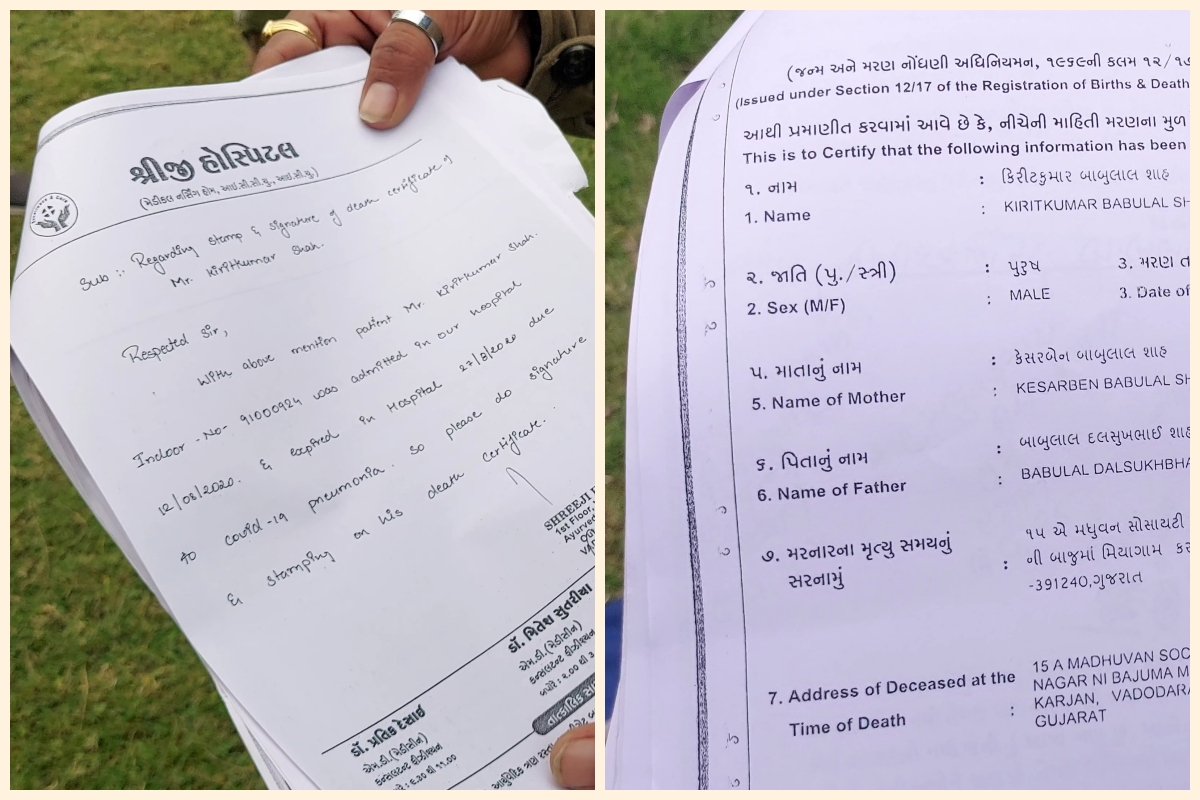 શ્રીજી હોસ્પિટલ
(મેડીકલ નર્સિંગ હોમ, આઇ.સી.સી.યુ., આઇ.સી.યુ.)
Sub :- Regarding stamp & signature of death certificate of
Mr. Kiritkumar Shah.
Respected Sir,
With above mention patient Mr. Kiritkumar Shah.
Indoor -No- 91000924 was admitted in our hospital
12/08/2020. & expired in Hospital 27/8/2020 due
to covid-19 pneumonia. so please do signature
& stamping on his death certificate.
SHREEJI
1st Floor,
Ayurved
ડૉ. મિતેશ સુતરીયા
એમ.ડી.(મેડીસીન)
કન્સલ્ટન્ટ ફીઝીશ્યન
ડૉ. પ્રતિક દેસાઇ
એમ.ડી.(મેડીસીન)
કન્સલ્ટન્ટ ફીઝીશ્યન
(જન્મ અને મરણ નોંધણી અધિનિયમન, ૧૯૬૯ની કલમ ૧૨/૧૭
(Issued under Section 12/17 of the Registration of Births & Death
આથી પ્રમાણીત કરવામાં આવે છે કે, નીચેની માહિતી મરણના મુળ
This is to Certify that the following information has been
૧. નામ : કિરીટકુમાર બાબુલાલ શાહ
1. Name : KIRITKUMAR BABULAL SH
૨. જાતિ (પુ./સ્ત્રી) : પુરુષ 3. મરણ ત
2. Sex (M/F) : MALE 3. Date of
૫. માતાનું નામ : કેસરબેન બાબુલાલ શાહ
5. Name of Mother : KESARBEN BABULAL SH
૬. પિતાનું નામ : બાબુલાલ દલસુખભાઈ શાહ
6. Name of Father : BABULAL DALSUKHBHA
૭. મરનારના મૃત્યુ સમયનું સરનામું : ૧૫ એ મધુવન સોસાયટી
ની બાજુમાં મિયાગામ કર
-391240,ગુજરાત
7. Address of Deceased at the Time of Death : 15 A MADHUVAN SOC
NAGAR NI BAJUMA M
KARJAN, VADODARA
GUJARAT